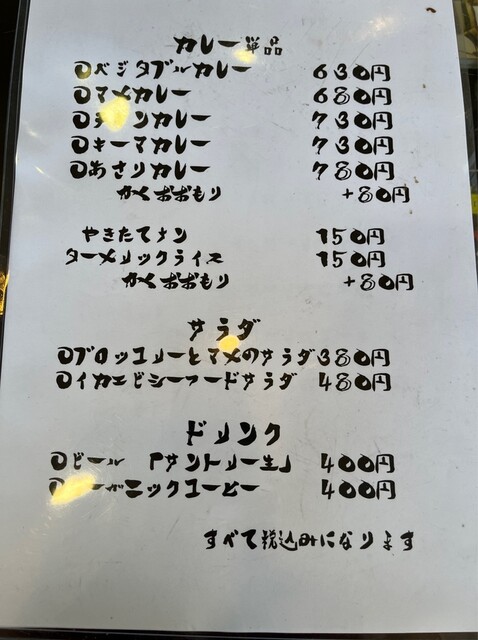 カレー単品
○ベジタブルカレー 630円
○マメカレー 680円
○チキンカレー 730円
○キーマカレー 730円
○あさりカレー 780円
かくおおもり +80円
やきたてナン 150円
ターメリックライス 150円
かくおおもり +80円
サラダ
○ブロッコリーとマメのサラダ 380円
○イカエビシーフードサラダ 480円
ドリンク
○ビール 「サントリー生」 400円
○オーガニックコーヒー 400円
すべて税込みになります